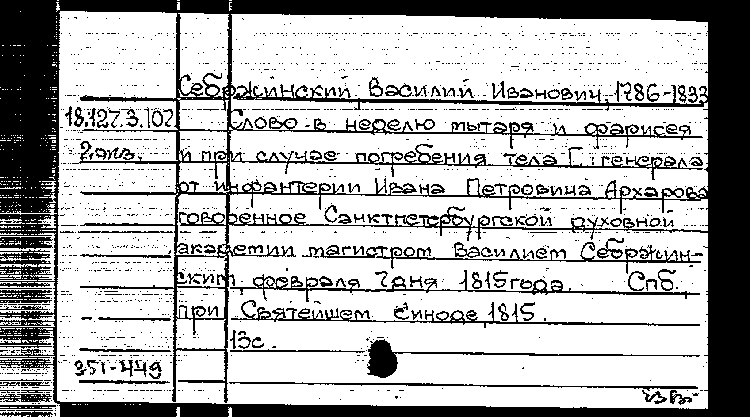 Себржинский, Василий Иванович, 1786-1833
18.127.3.102 Слово в неделю мытаря и фарисея
2 экз. и при случае погребения тела Г: генерала
от инфантерии Ивана Петровича Архарова
говоренное Санктпетербургской духовной
академии магистром Василием Себржин-
ским, февраля 7 дня 1815 года. Спб.,
при Святейшем Синоде, 1815.
13с.
351-449